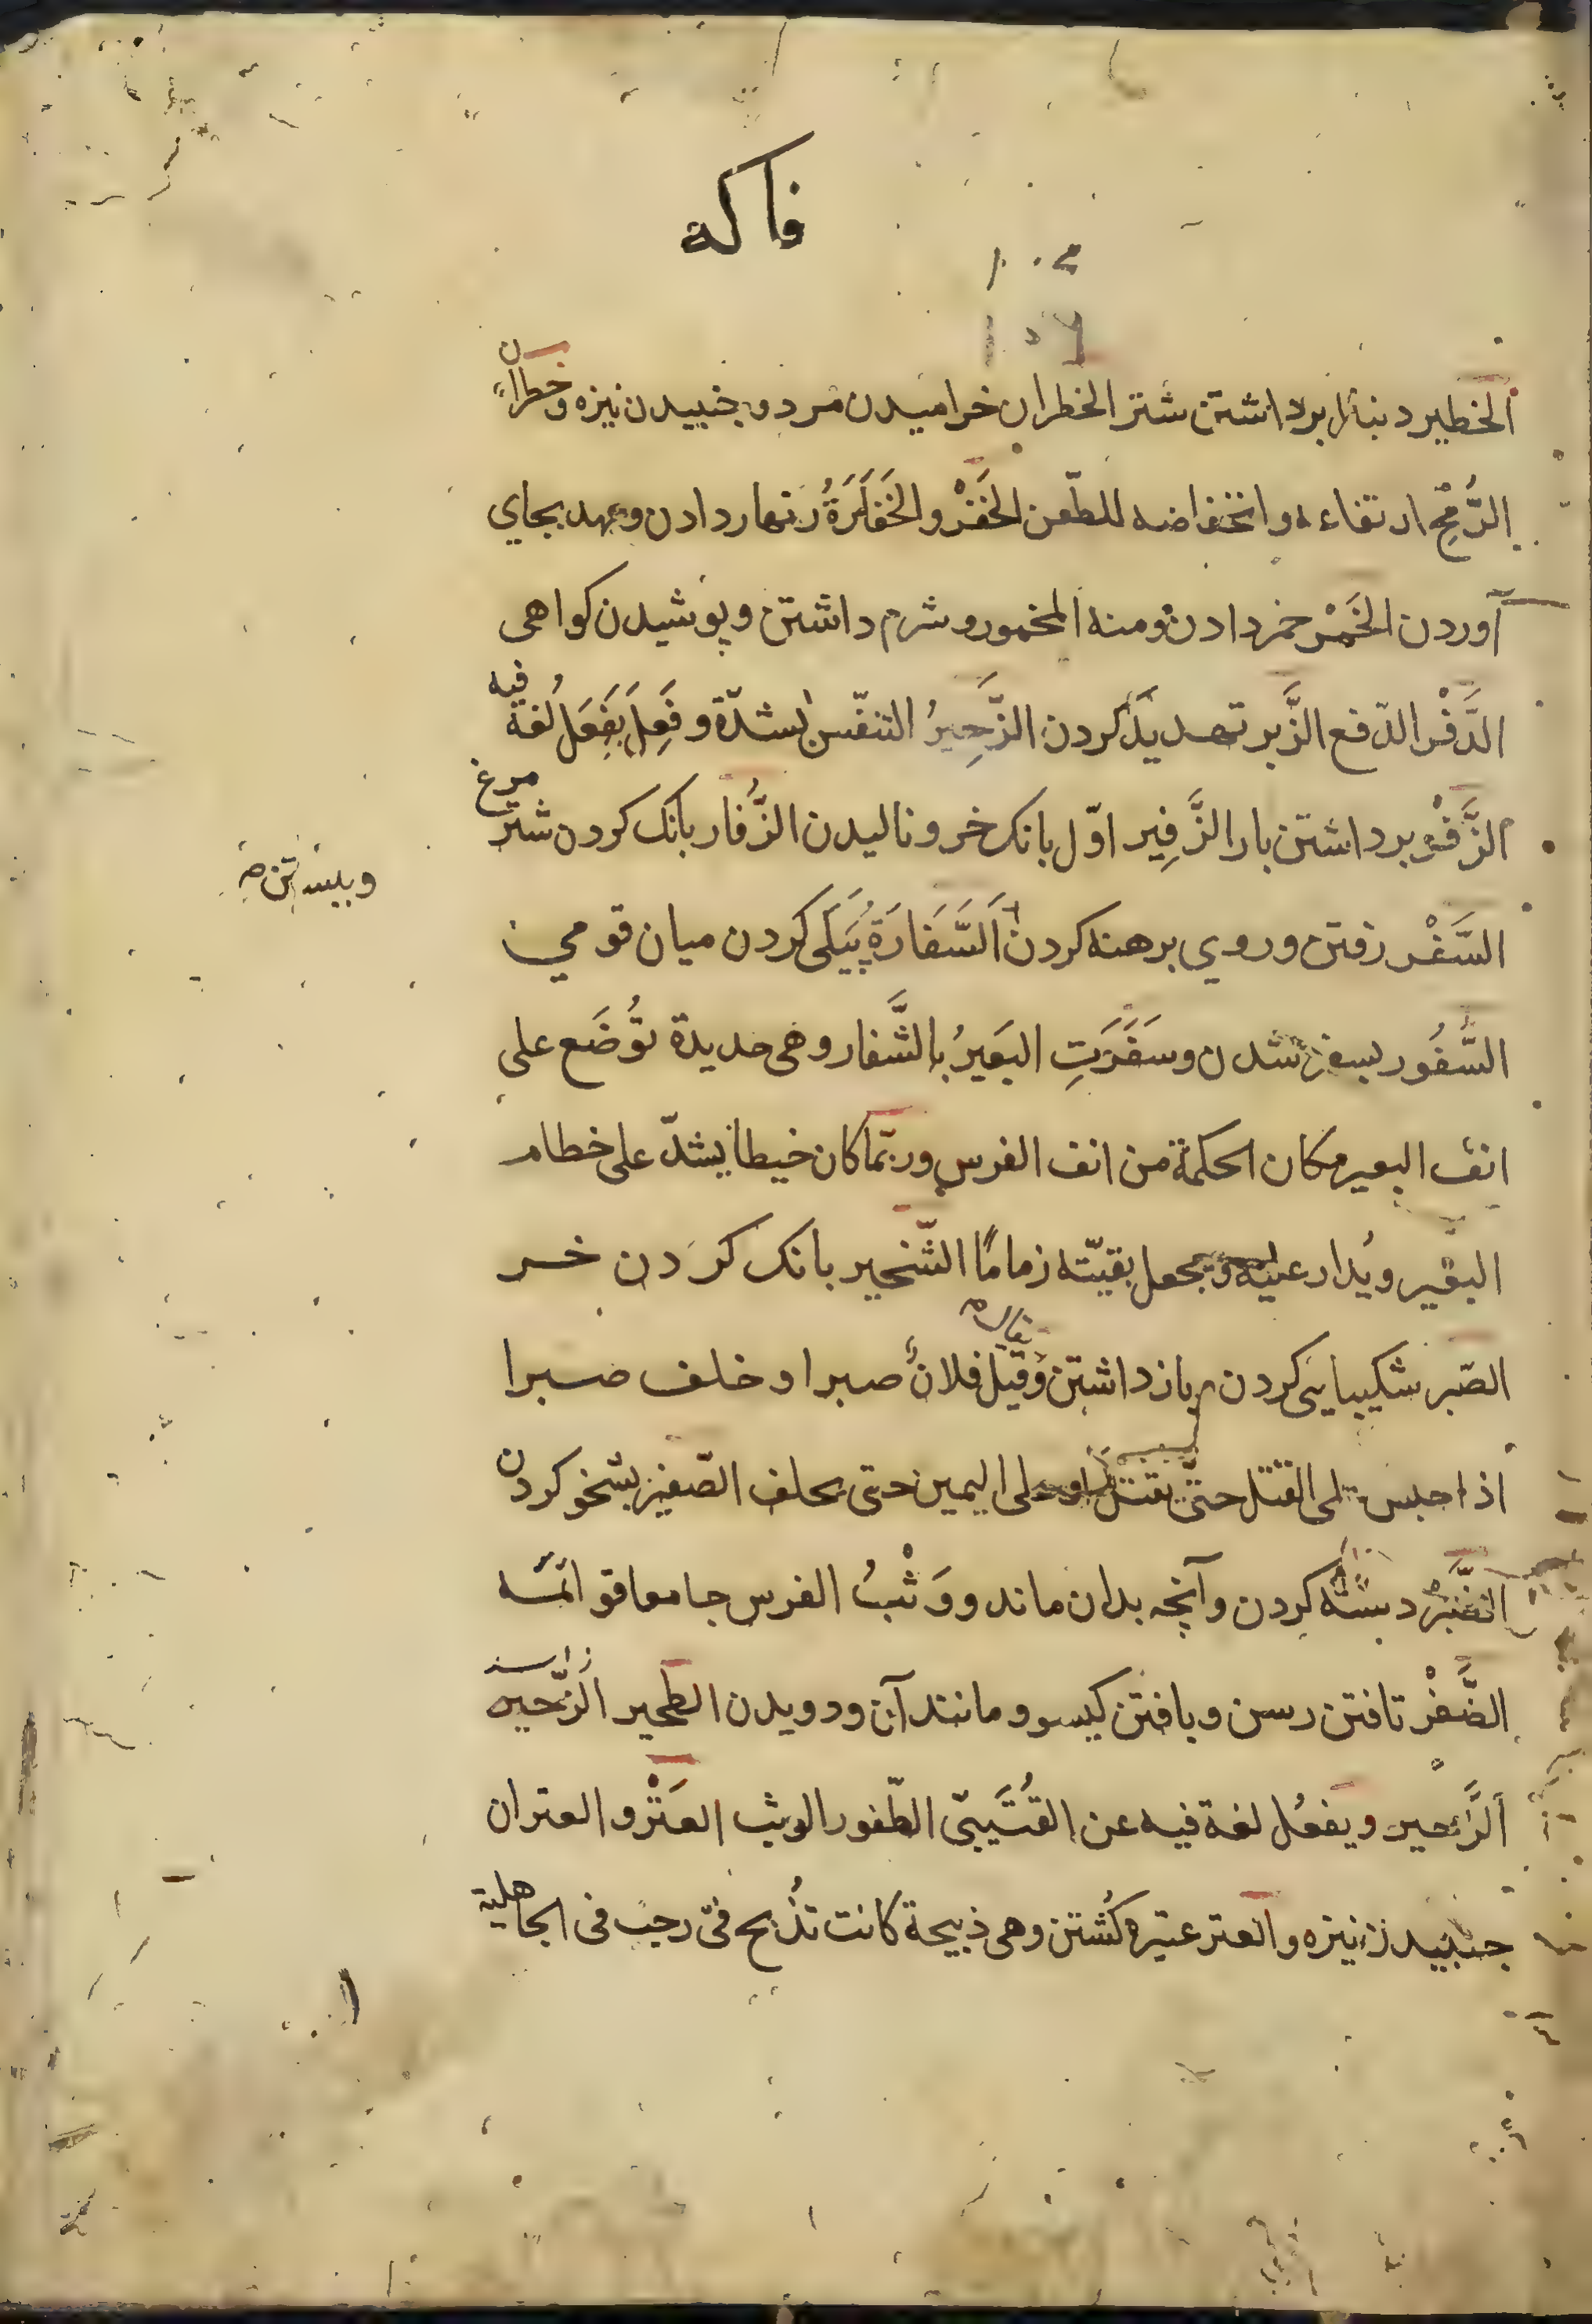 فاكه
الخطير دنبال برداشتن شتر الخطران خراميدن مرد و جنبيدن نيزه وخطران
الرُّمْحِ ارتفاعه وانخفاضه للطّعن الخَفْرْ والخَفَارَةُ زنهار دادن وعهد بجاي
آوردن الخَمْر خمر دادن ومنه المخمور و شرم داشتن و پوشيدن كواهى
الدَّفْر الدّفع الزَّبر تهديد كردن الزَّحِيرُ التنفّس بشدّة وفَعِلَ يَفعَل لُغة فيه
الزَّفْر برداشتن بار الزَّفِير اوّل بانك خر و ناليدن الزُّفار بانك كردن شتر مرغ
السَّفْر رفتن و روي برهنه كردن اَلسَّفَارَةُ پَيكَى كردن ميان قومي
السُّفُور بسفر شدن وسَفَرَتِ البَعِيرُ بالسَّفار وهى حديدة تُوضَع على
انف البعير مكان الحكمة من انف الفرس وربّما كان خيطا يشدّ على خطام
البعير ويُدار عليه ويجعل بقيّته زمامًا الشّخير بانك كردن خر
الصّبر شكيبايى كردن و باز داشتن وقيل فلانٌ صبرا و حلف صبرا
اذا حبس على القتل حتّى يقتل او على اليمين حتى يحلف الصّفير بشخو كردن
الضَّبْرُ دسته كردن وآنچه بدان ماند ووَثْبُ الفرس جامعا قوائمه
الضَّفْرْ تافتن رسن و بافتن كيسو و مانند آن و دويدن الطحير الزّحير
الزَّحير ويفعُل لغة فيه عن القُتَيبىّ الطّفور الوثب العَتْرْ و العتران
جنبيدن نيزه والعتر عتيره كُشتن وهى ذبيحة كانت تُذْبح فى رجب فى الجاهلية